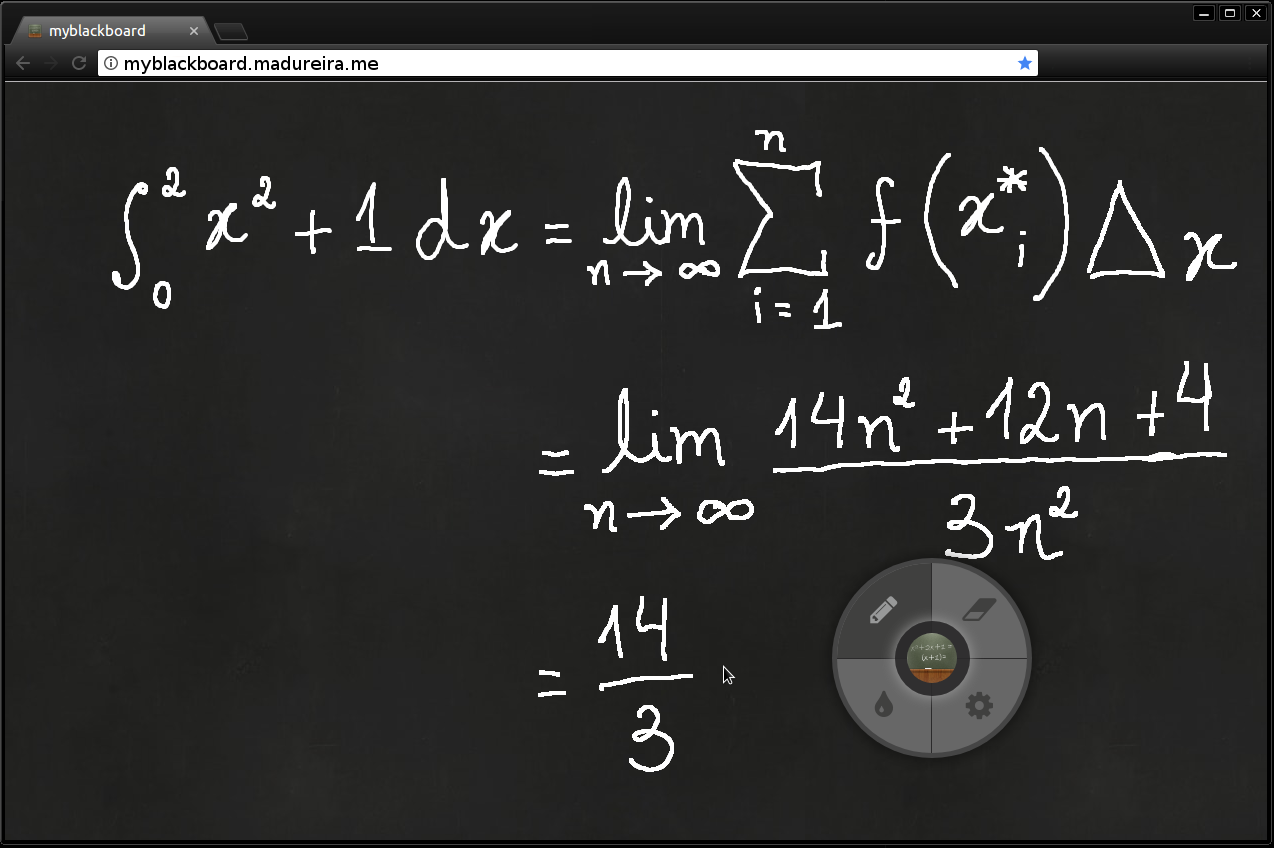 myblackboard
myblackboard.madureira.me
∫₀² x² + 1 dx = lim n→∞ ∑ i=1 n f(x*ᵢ) Δx
= lim n→∞ (14n² + 12n + 4) / 3n²
= 14/3
x² + 2x + 1 =
(x+1)²